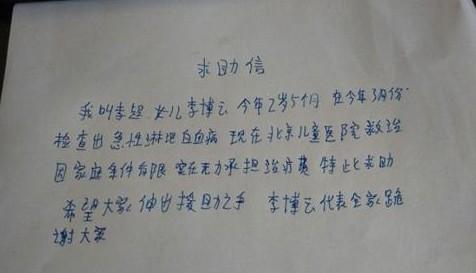 求助信
我叫李超 女儿李博云 今年2岁5个月 在今年3月份
检查出 急性淋巴白血病 现在北京儿童医院救治
因家庭条件有限 实在无力承担治疗费 特此求助
希望大家伸出援助之手 李博云代表全家跪
谢大家